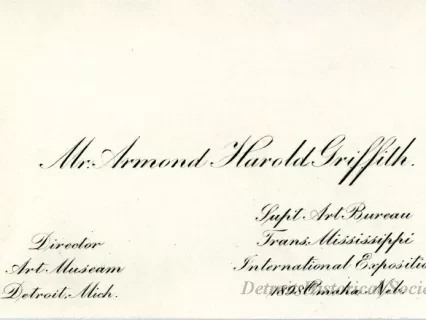 Mr. Armond Harold Griffith.
Director
Art Museum
Detroit, Mich.
Supt. Art Bureau
Trans. Mississippi
International Expositio
1898 Omaha, Neb.
Detroit Historical Socie